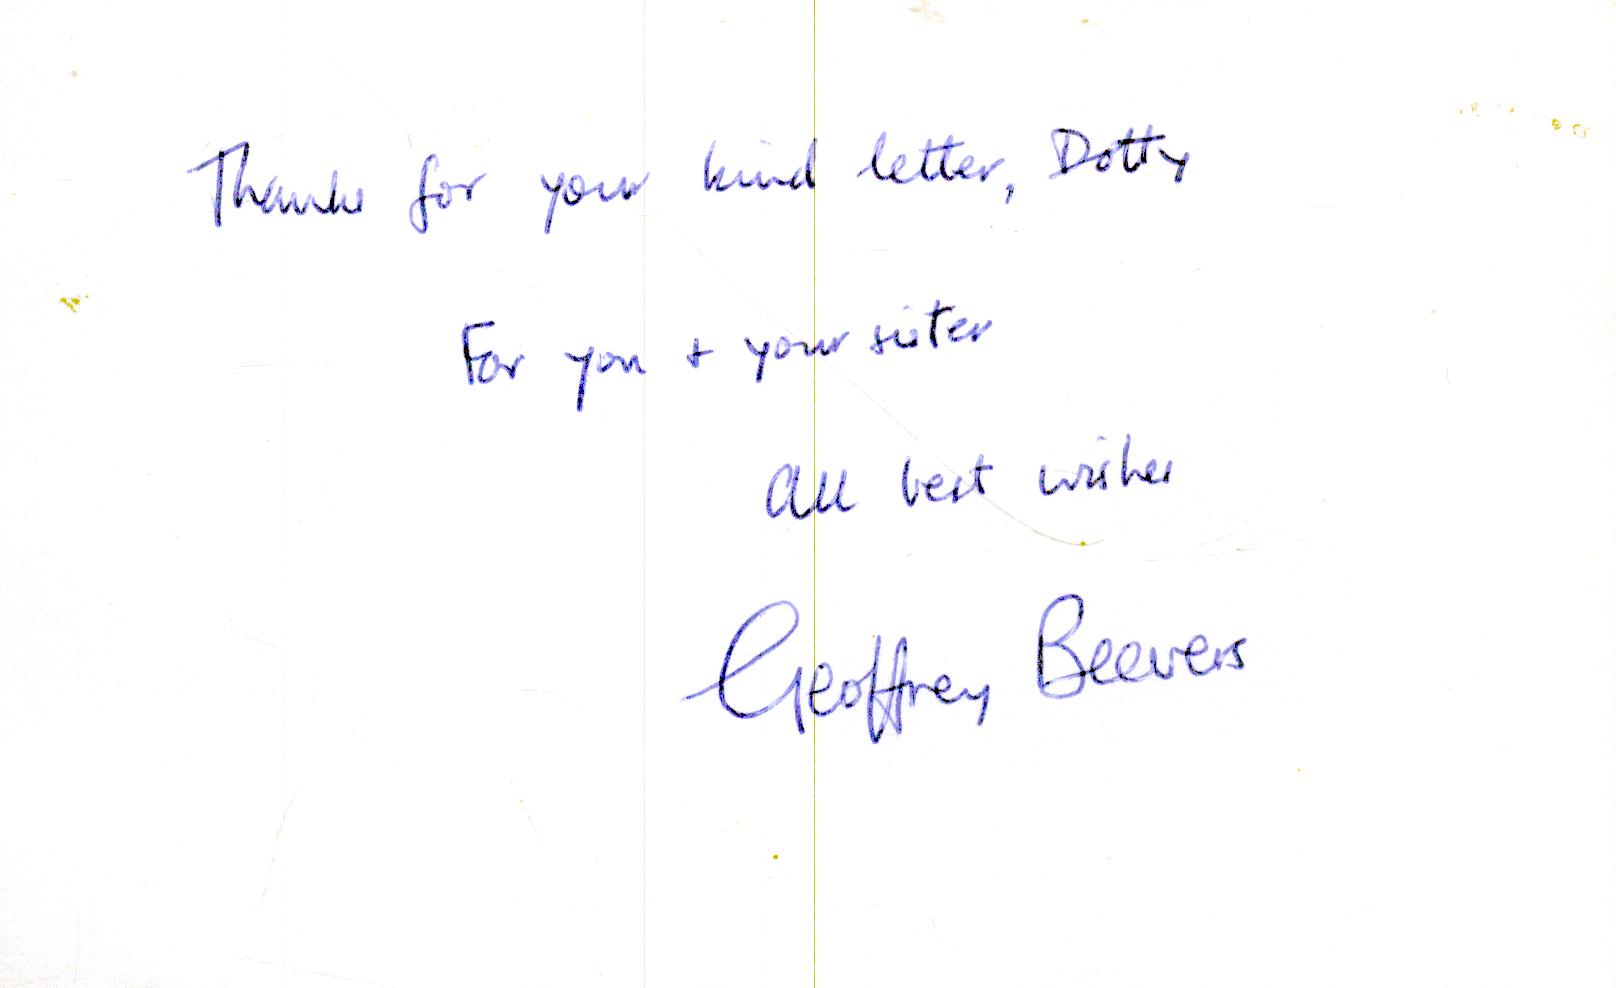 Thanks for your kind letter, Dotty
For you + your sister
All best wishes
Geoffrey Beevers